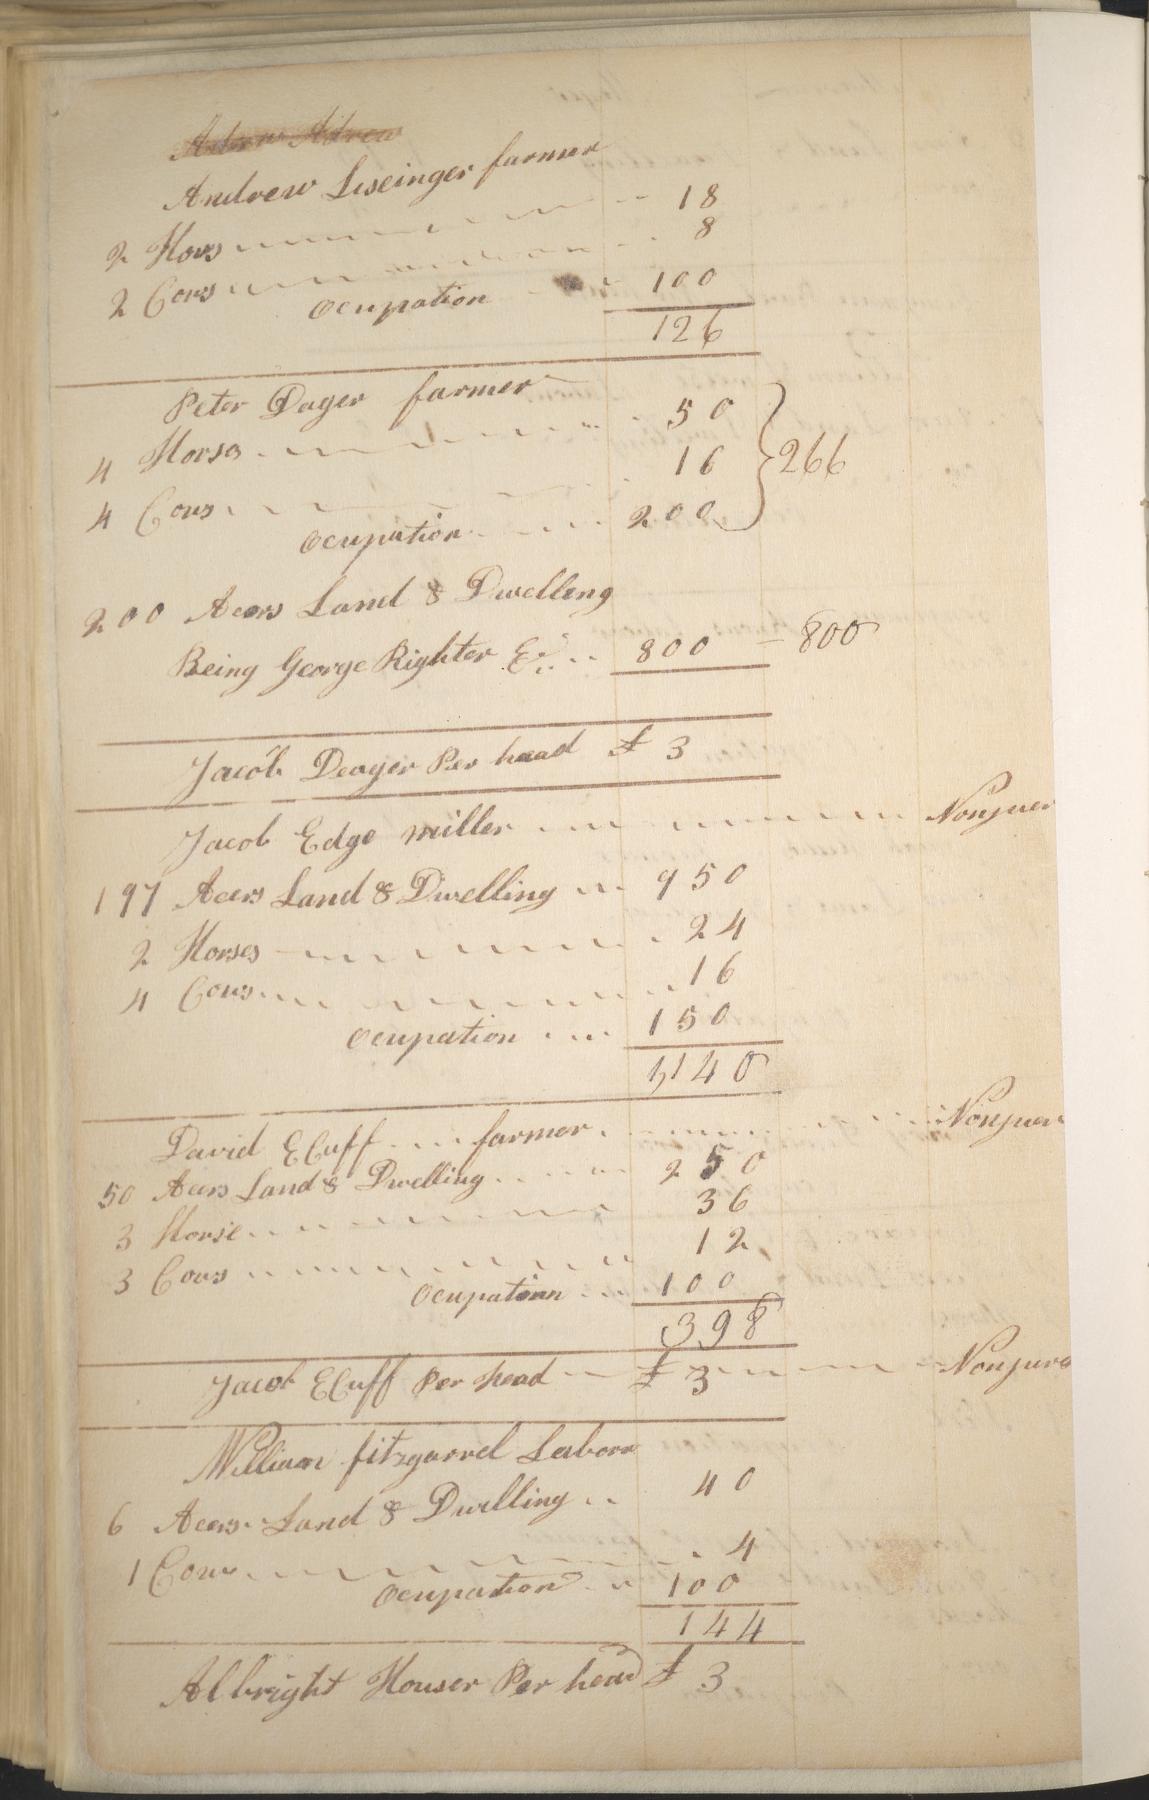 Andrew farmer
2 Hors 18
2 Cows 8
Ocupation 100
126
Peter Dager farmer
4 Horses 50
4 Cows 16 } 266
Ocupation 200
200 Acers Land & Dwelleng
Being George Righter 800 – 800
Jacob Deager Per head £ 3
Jacob Edge miller Nonjuer
197 Acers Land & Dwelling 950
2 Horses 24
4 Cows 16
Ocupation 150
1140
David ECuff farmer Nonjuer
50 Acers Land & Dwelling 250
3 Horse 36
3 Cows 12
Ocupation 100
398
Jacob ECuff Per head £ 3 Nonjuro
William fitzgarrel Labore
6 Acers Land & Dwelling 40
1 Cow 4
Ocupation 100
144
Albright Houser Per head £ 3